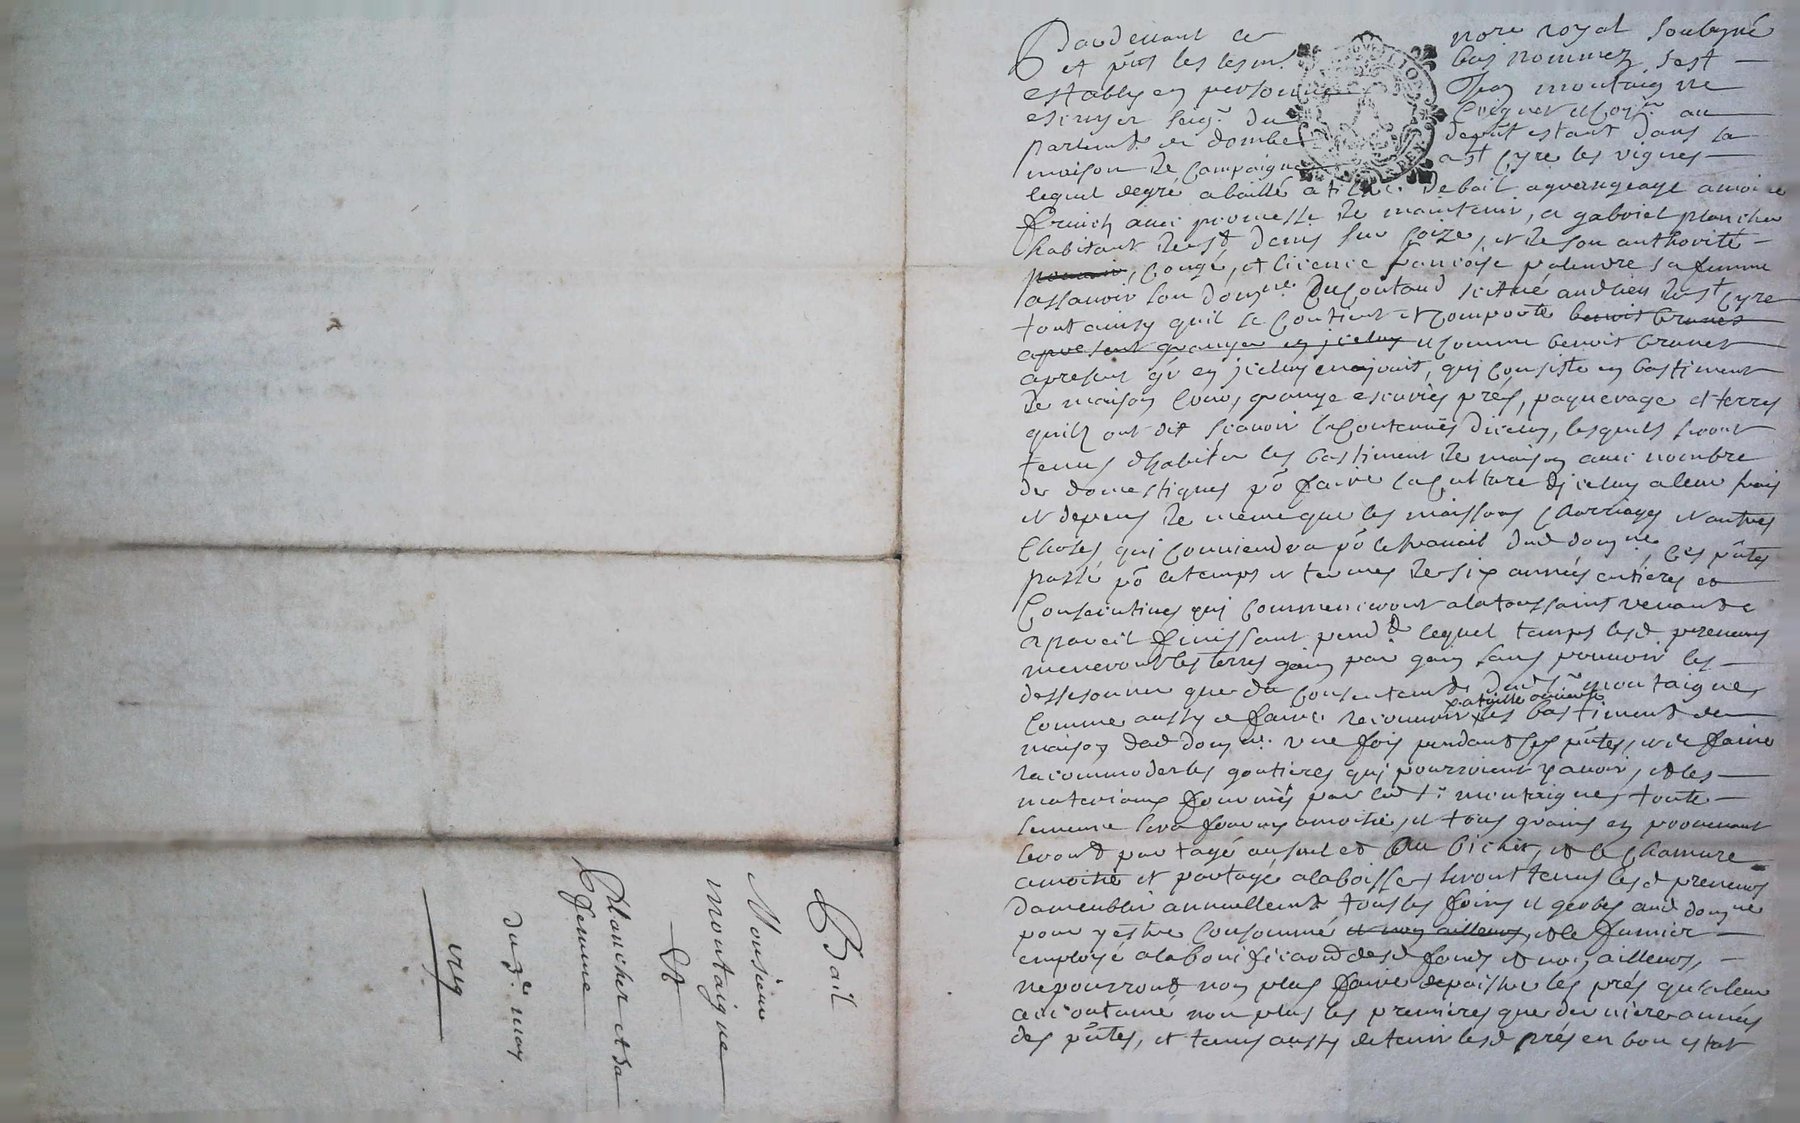 Pardevant le nore royal soubsigné
et pnts les tesm. bas nommez sest
estably en personne Jean montaigne
escuyer seigr du
parlemt de dombe depnt estant dans sa
maison de campaigne a st Cyre les vignes
lequel de gré a baillé a tiltre de bail a grangeage a moitié
fruicts avec promesse de maintenir, a gabriel plancher
habitant de st denis sur Coize, et de son authorité
congé, et licence francoise palendre sa femme
assavoir son domne Du Coutaud scitué aud lieu de st Cyre
tout ainsy quil se contient et comporte benoist brunet
a present granger en jceluy et comme benoist brunet
a present gr en jceluy en jouit, qui consiste en bastiment
de maison cour, grange escuries prés, paquerage et terres
quils ont dit scavoir la Contenues dicelny, lesquels seront
tenus dhabiter les bastiment de maison avec nombre
de domestiques po faire la Culture dicelluy a leur frais
et depens de meme que les moissons charriages et autres
choses qui conviendra po le travail dud domne, les pntes
passé po le temps et termes de six années entieres et
Consecutives qui commenceront a la toussaint venant et
a pareil finissant pendt lequel temps lesd preneurs
meneront les terres gain par gain sans pouvoir les
dessesonner que du consentemt dud sr montaigne
comme aussy de faire recouvrir les bastiment de
maison dud domne une fois pendant les pntes, et de faire
racommoder les goutieres qui pourroient y avoir, et les
materiaux fournies par led sr montaigne, toute
semence sera fourny a moitie, et tous grains en provenant
seront partagé au sol et au bichet, et le chanvre
a moitié et partagé a la boisse, seront tenus lesd preneurs
dameublir annuellemt tous les foins et gerbes aud domne
pour y estre consommé et non ailleurs, et le fumier
employé a la bonificaon desd fonds et non ailleurs,
ne pourront non plus faire depaistre les prés qua leur
accoutumé non plus les premieres que derniere années
des pntes, et tenus aussy de tenir lesd prés en bon estat
Bail
Monsieur
montaigne
Et
Plancher et sa
femme
du 2e may
1719